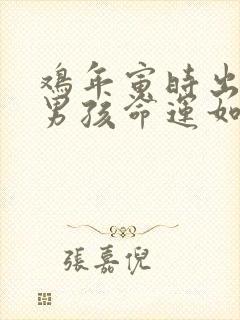 鸡年寅时出
男孩命运如
張嘉倪